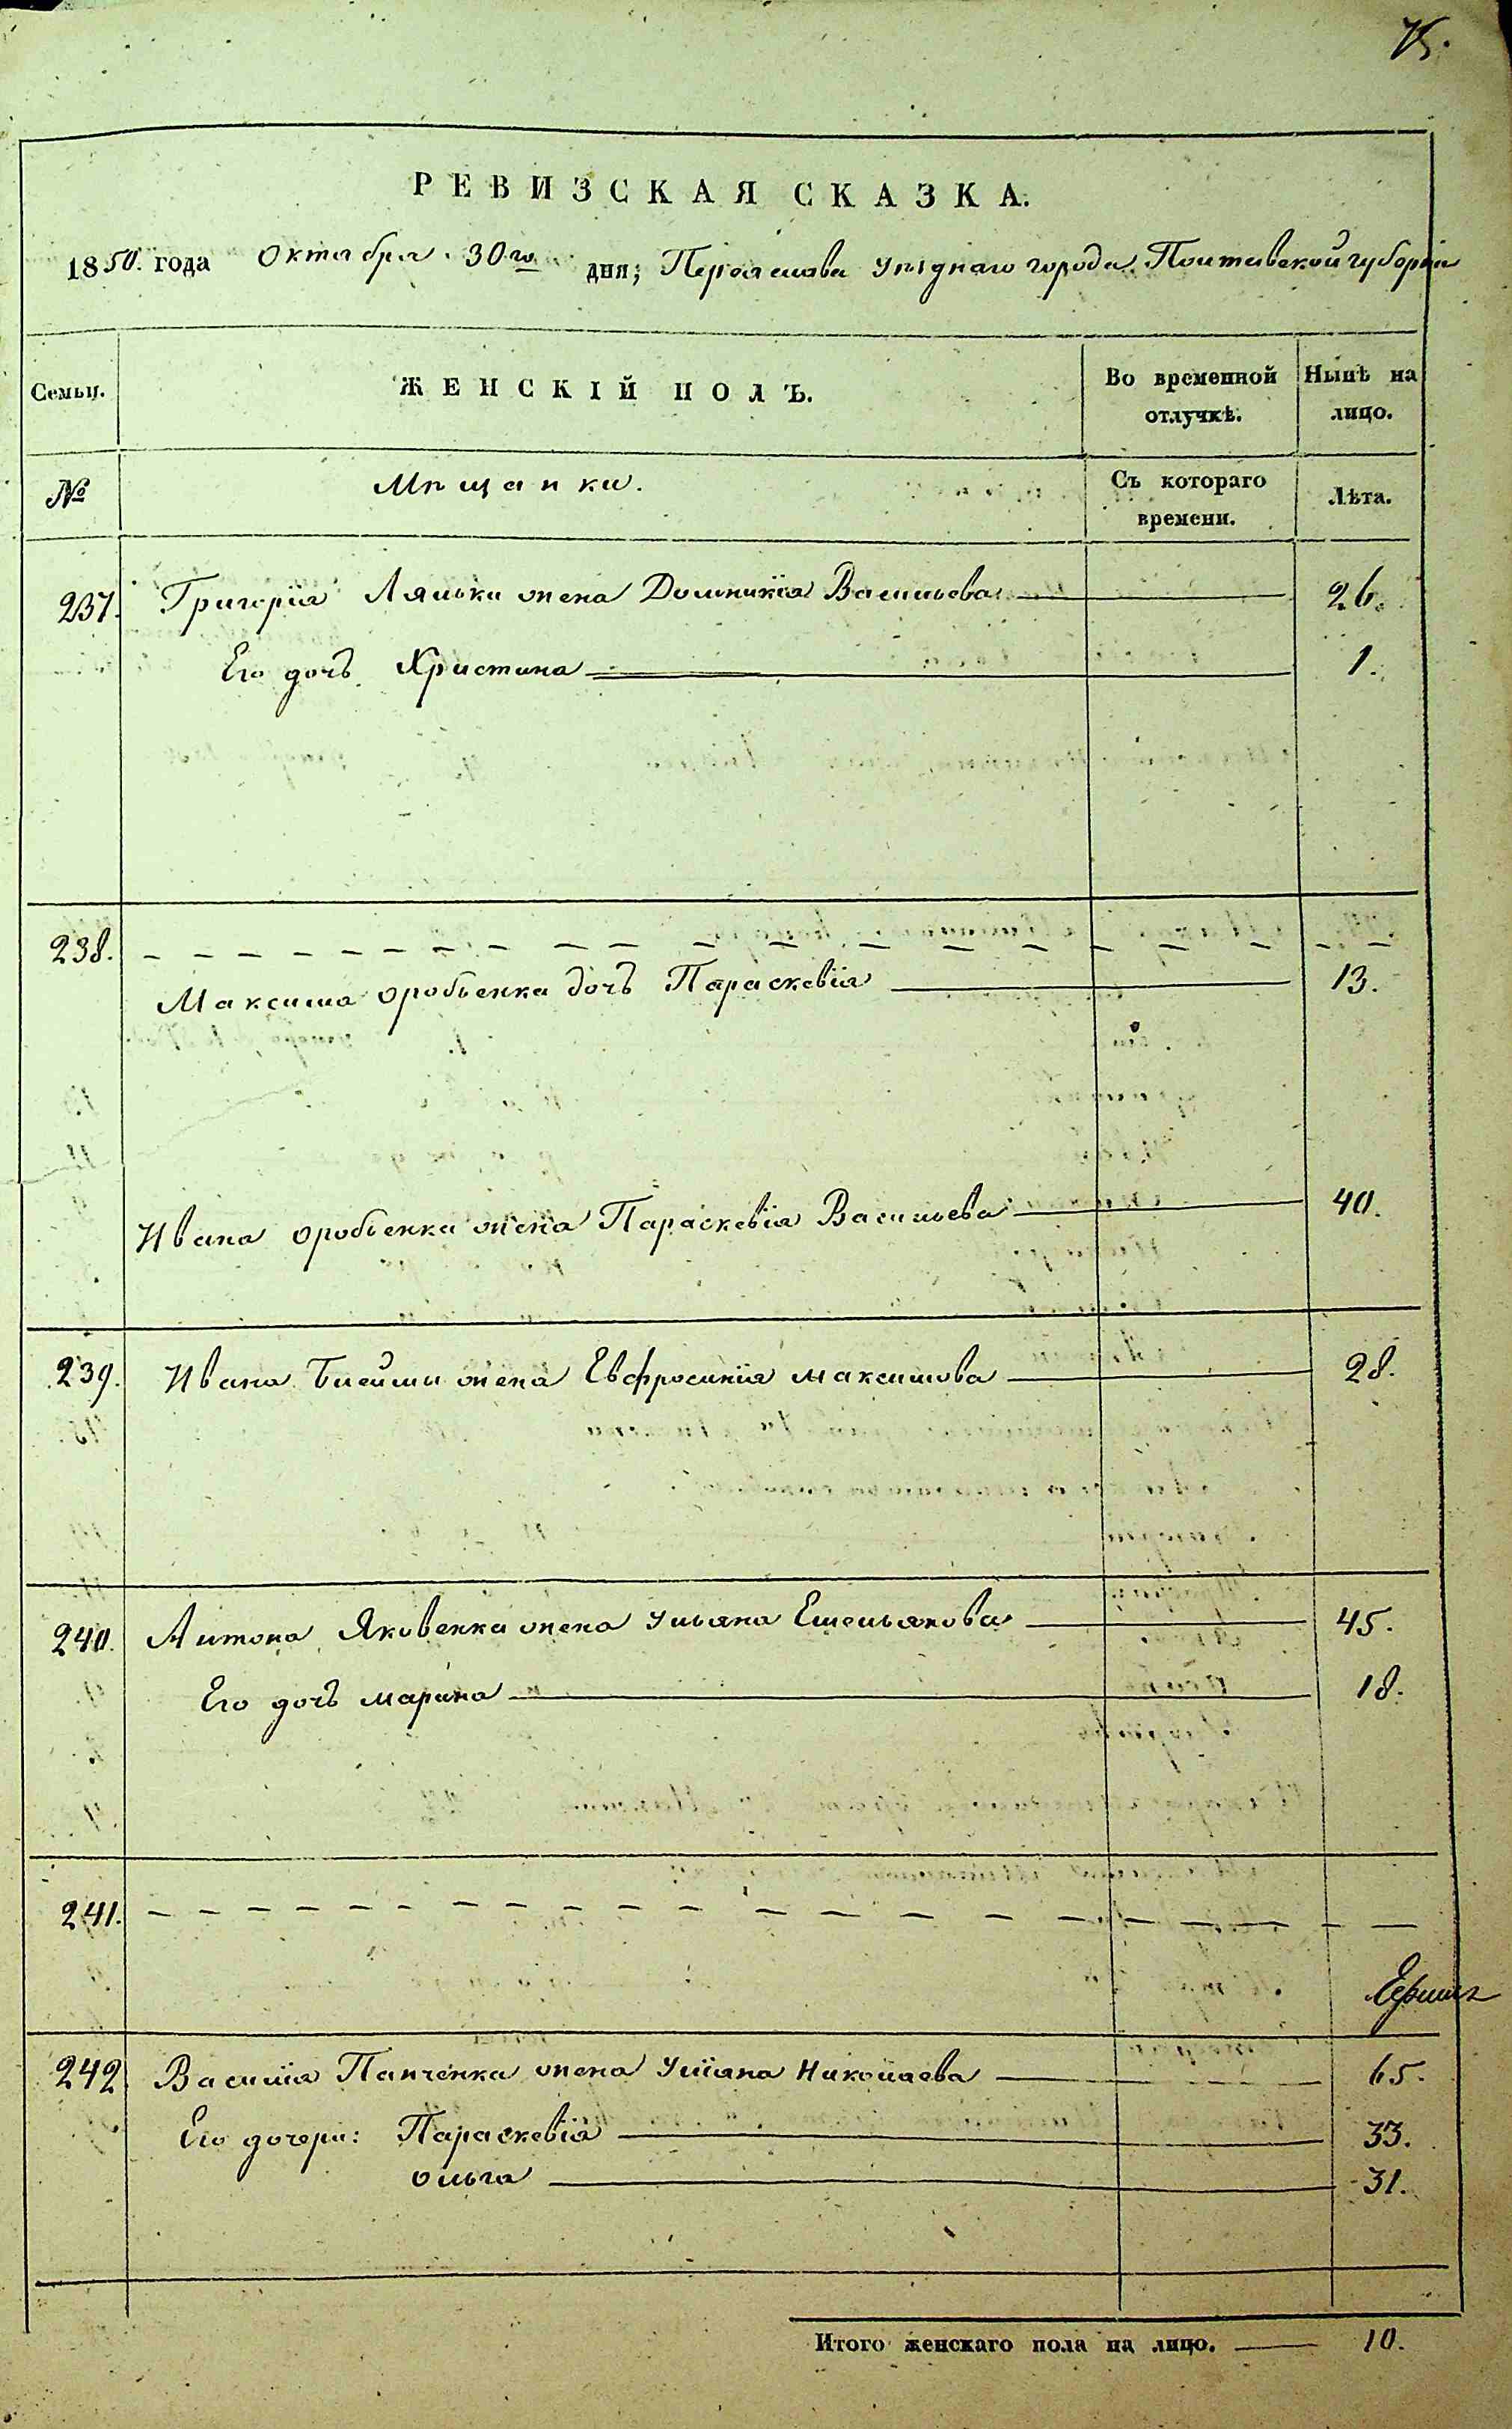 75.
РЕВИЗСКАЯ СКАЗКА.
1850. года Октября 30го дня; Переяслова уѣзднаго города Полтавской губерніи
Семьи. ЖЕНСКІЙ ПОЛЪ. Во временной отлучкѣ. Нынѣ на лицо.
№ Мѣщанки. Съ котораго времени. Лѣта.
237. Григорія Ляльки жена Домникія Васильева 26.
Его дочь Христина 1.
238.
Максима оробьенка дочь Параскевія 13.
Ивана оробьенка жена Параскевія Васильева 40.
239. Ивана жена Евфросинія максимова 28.
240. Антона Яковенка жена Ульяна Емельянова 45.
Его дочь марина 18.
241.
242. Василія Панченка жена Уліяна Николаева 65.
Его дочери: Параскевія 33.
ольга 31.
Итого женскаго пола на лицо. 10.